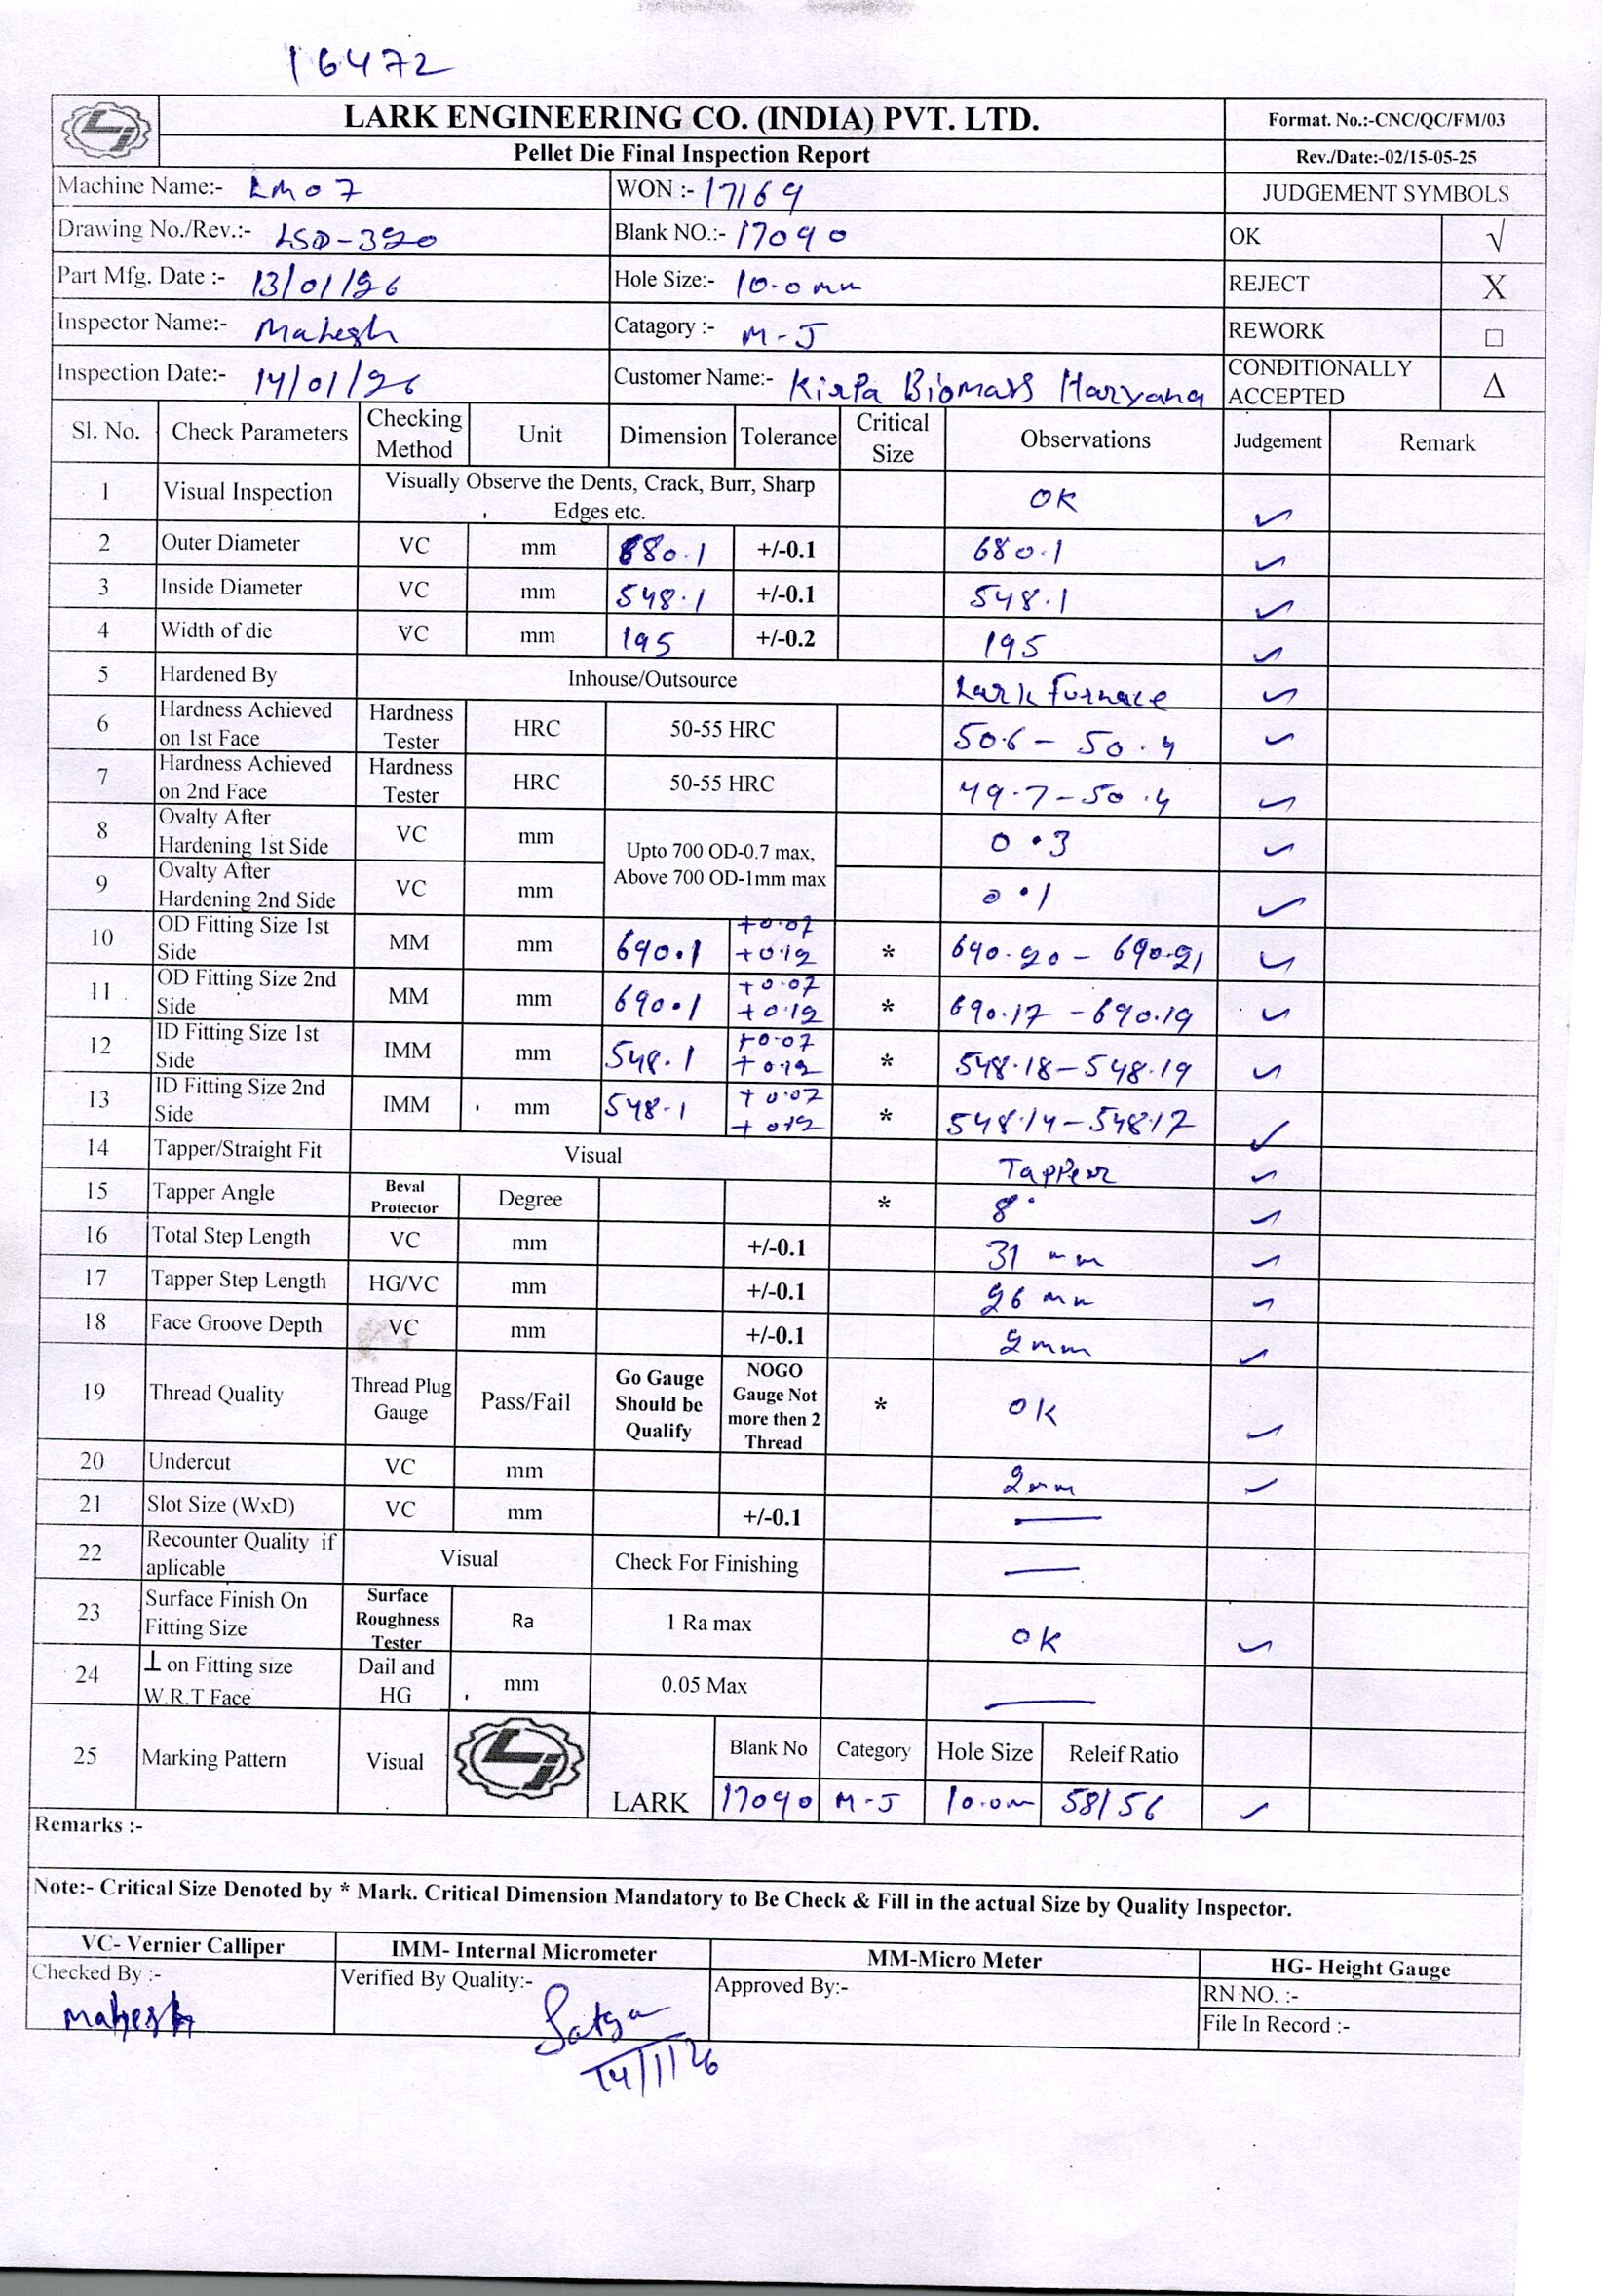 16472
LARK ENGINEERING CO. (INDIA) PVT. LTD. Format. No.:-CNC/QC/FM/03
Pellet Die Final Inspection Report Rev./Date:-02/15-05-25
Machine Name:- LM07 WON :- 17169 JUDGEMENT SYMBOLS
Drawing No./Rev.:- LSD-320 Blank NO.:- 17090 OK √
Part Mfg. Date :- 13/01/26 Hole Size:- 10.0 mm REJECT X
Inspector Name:- Mahesh Catagory :- M-J REWORK □
Inspection Date:- 14/01/26 Customer Name:- Kirpa Biomass Haryana CONDITIONALLY ACCEPTED Δ
Sl. No. Check Parameters Checking Method Unit Dimension Tolerance Critical Size Observations Judgement Remark
1 Visual Inspection Visually Observe the Dents, Crack, Burr, Sharp Edges etc. OK ✓
2 Outer Diameter VC mm 680.1 +/-0.1 680.1 ✓
3 Inside Diameter VC mm 548.1 +/-0.1 548.1 ✓
4 Width of die VC mm 195 +/-0.2 195 ✓
5 Hardened By Inhouse/Outsource Lark Furnace ✓
6 Hardness Achieved on 1st Face Hardness Tester HRC 50-55 HRC 50.6 - 50.4 ✓
7 Hardness Achieved on 2nd Face Hardness Tester HRC 50-55 HRC 49.7-50.4 ✓
8 Ovalty After Hardening 1st Side VC mm Upto 700 OD-0.7 max, Above 700 OD-1mm max 0.3 ✓
9 Ovalty After Hardening 2nd Side VC mm 0.1 ✓
10 OD Fitting Size 1st Side MM mm 690.1 +0.07 +0.12 * 690.20 - 690.21 ✓
11 OD Fitting Size 2nd Side MM mm 690.1 +0.07 +0.12 * 690.17 -690.19 ✓
12 ID Fitting Size 1st Side IMM mm 548.1 +0.07 +0.12 * 548.18-548.19 ✓
13 ID Fitting Size 2nd Side IMM mm 548.1 +0.07 +0.12 * 548.14-548.17 ✓
14 Tapper/Straight Fit Visual Tapper ✓
15 Tapper Angle Beval Protector Degree * 8° ✓
16 Total Step Length VC mm +/-0.1 31 mm ✓
17 Tapper Step Length HG/VC mm +/-0.1 26 mm ✓
18 Face Groove Depth VC mm +/-0.1 2mm ✓
19 Thread Quality Thread Plug Gauge Pass/Fail Go Gauge Should be Qualify NOGO Gauge Not more then 2 Thread * OK ✓
20 Undercut VC mm 2mm ✓
21 Slot Size (WxD) VC mm +/-0.1 —
22 Recounter Quality if aplicable Visual Check For Finishing —
23 Surface Finish On Fitting Size Surface Roughness Tester Ra 1 Ra max OK ✓
24 ⊥ on Fitting size W.R.T Face Dail and HG mm 0.05 Max —
25 Marking Pattern Visual LARK Blank No Category Hole Size Releif Ratio
17090 M-J 10.0m 58/56 ✓
Remarks :-
Note:- Critical Size Denoted by * Mark. Critical Dimension Mandatory to Be Check & Fill in the actual Size by Quality Inspector.
VC- Vernier Calliper IMM- Internal Micrometer MM-Micro Meter HG- Height Gauge
Checked By :- Mahesh Verified By Quality:- Satya Approved By:- RN NO. :-
14/1/26 File In Record :-